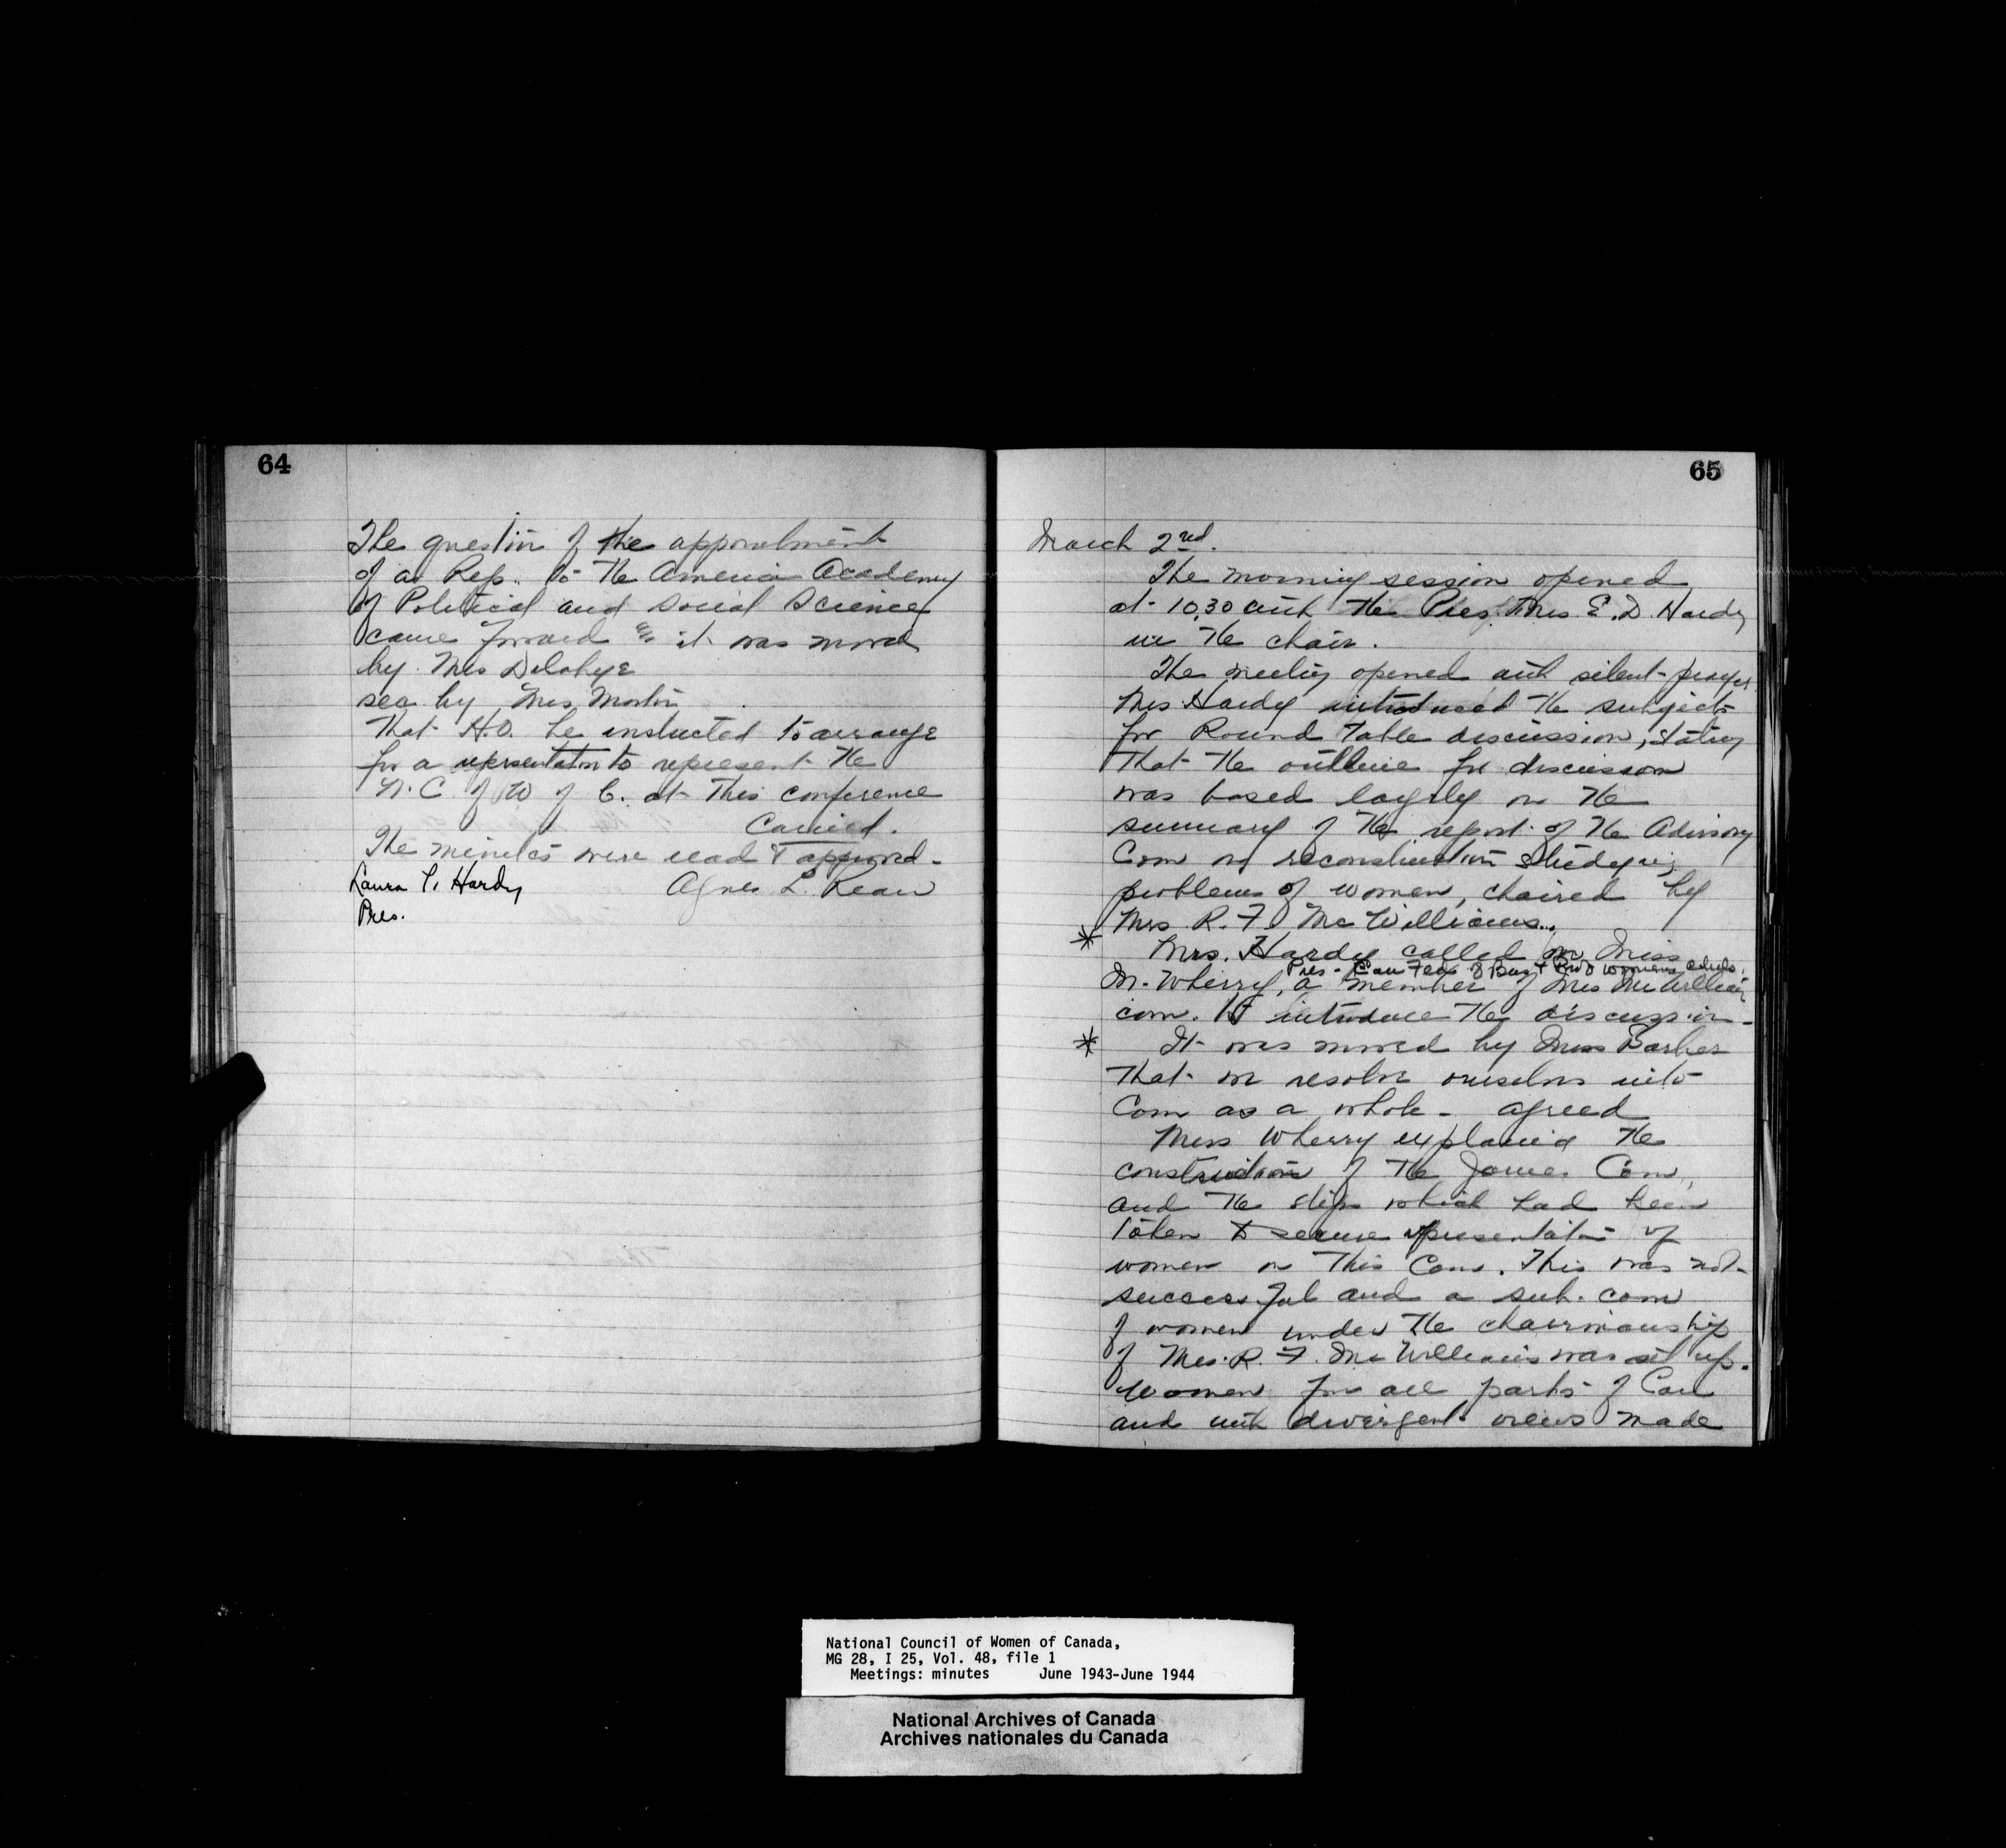 64
The question of the appointment
of a Rep. to the American Academy
of Political and Social Science
came forward & it was moved
by Mrs Delahye
sec by Mrs Martin
That H.O. be instructed to arrange
for a representation to represent the
N.C. of W of C. at this conference
Carried.
The minutes were read & approved.
Laura P. Hardy Agnes L.
Pres.
65
March 2nd.
The morning session opened
at 10.30 with the Pres, Mrs. E.D. Hardy
in the chair.
The meeting opened with silent prayer
Mrs Hardy introduced the subjects
for Round Table discussion, stating
that the outline for discussion
was based largely on the
summary of the report of the Advisory
Com on reconstruction studying
problems of women, chaired by
Mrs R. F. McWilliams.
* Mrs. Hardy called on Miss
Pres - Can Fed of Bus & Prof women's clubs.
M. Wherry, a member of Mrs McWilliams
com. to introduce the discussion -
* It was moved by Miss Barber
that we resolve ourselves into
Com as a whole - agreed
Miss Wherry explained the
construction of the James Com,
and the steps which had been
taken to secure representation of
women on this Com. This was not
successful and a sub. com
of women under the chairmanship
of Mrs. R. F. McWilliams was set up.
Women from all parts of Can
and with divergent views made
National Council of Women of Canada,
MG 28, I 25, Vol. 48, file 1
Meetings: minutes June 1943-June 1944
National Archives of Canada
Archives nationales du Canada